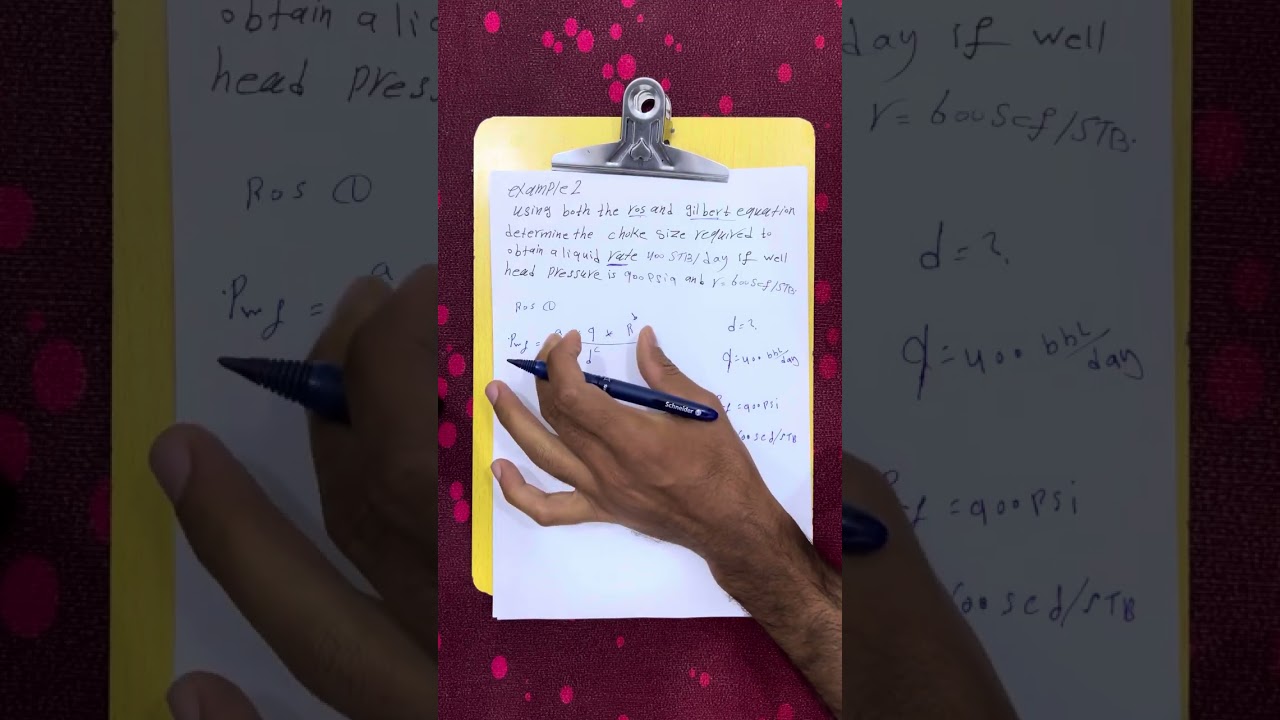 example 2
using both the ros and gilbert equation
determine the choke size required to
obtain a liquid rate 400 STB/day if well
head pressure is 900 psig and r=600 scf/STB.
Ros ①
Pwf =
q * R
d²
d=?
q=400 bbl/day
=900psi
scf/STB
Schneider